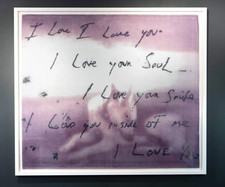 I Love I Love you.
I Love your Soul
I Love your Smile
I Love you inside of me
I LOVE You